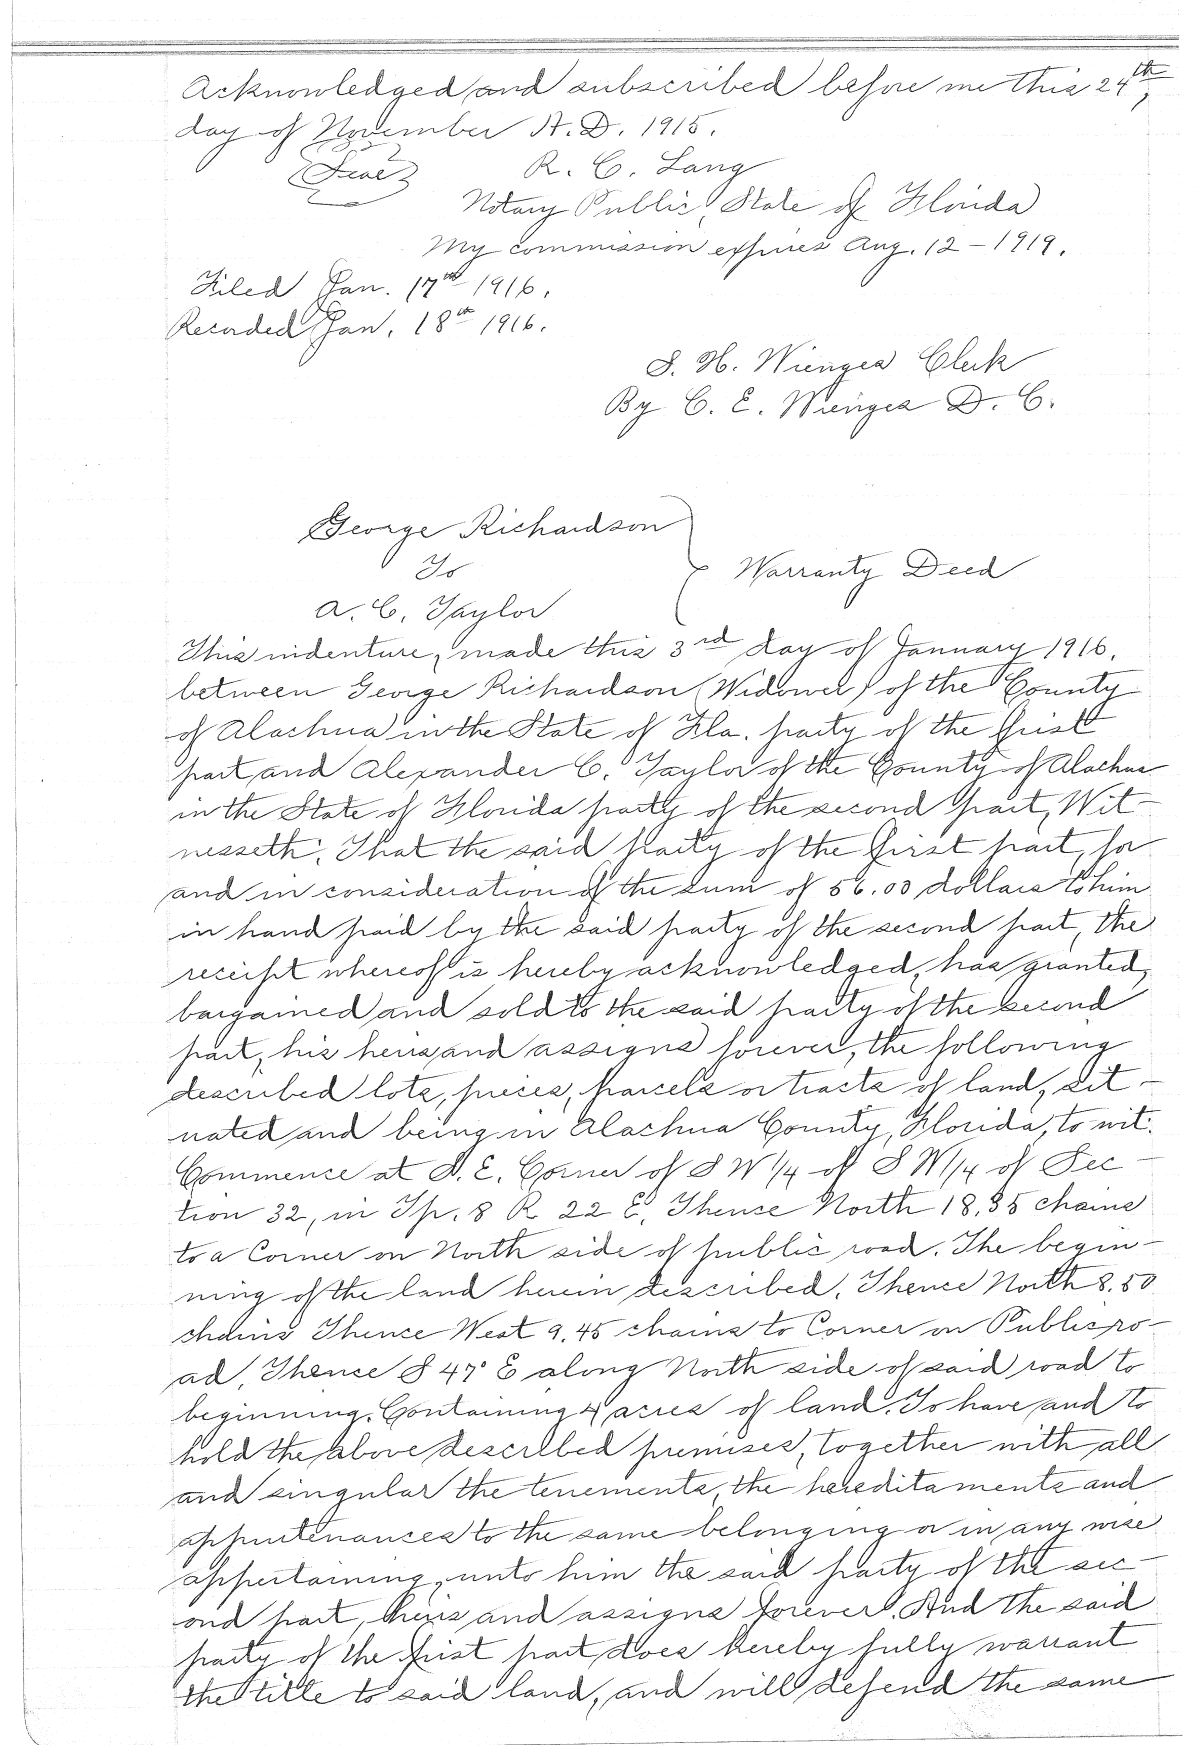 Acknowledged and subscribed before me this 24th,
day of November A.D. 1915.
(Seal) R. C. Lang
Notary Public, State of Florida
My commission expires Aug. 12 - 1919.
Filed Jan. 17th 1916.
Recorded Jan. 18th 1916.
S. H. Wienges Clerk
By C. E. Wienges D. C.
George Richardson
To
Warranty Deed
A. C. Taylor
This indenture, made this 3rd day of January 1916,
between George Richardson (Widower) of the County
of Alachua in the State of Fla. party of the first
part and Alexander C. Taylor of the County of Alachua
in the State of Florida party of the second part, Wit-
nesseth; That the said party of the first part, for
and in consideration of the sum of 56.00 dollars to him
in hand paid by the said party of the second part, the
receipt whereof is hereby acknowledged, has granted,
bargained and sold to the said party of the second
part, his heirs and assigns forever, the following
described lots, pieces, parcels or tracts of land, sit-
uated and being in Alachua County, Florida, to wit:
Commence at S. E. Corner of S W 1/4 of S W 1/4 of Sec-
tion 32, in Tp. 8 R 22 E, Thense North 18.35 chains
to a Corner on North side of public road. The begin-
ning of the land herein described. Thence North 8.50
chains Thence West 9.45 chains to Corner on Public ro-
ad. Thence S 47° E along North side of said road to
beginning. Containing 4 acres of land. To have and to
hold the above described premises, together with all
and singular the tenements, the hereditaments and
appurtenances to the same belonging or in any wise
appertaining, unto him the said party of the sec-
ond part, heirs and assigns forever. And the said
party of the first part does hereby fully warrant
the title to said land, and will defend the same